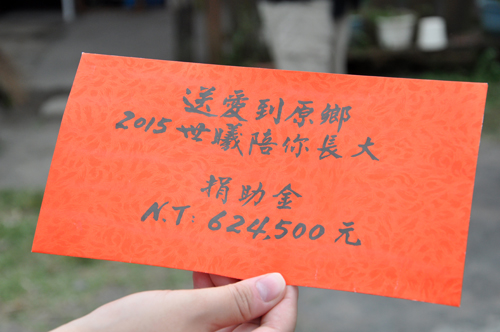 送愛到原鄉
2015 世曦陪你長大
捐助金
N.T: 624,500 元